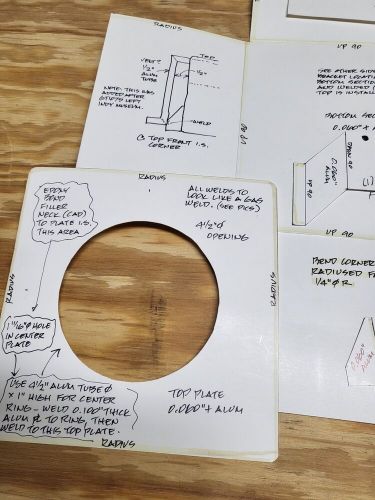 RADIUS
VENT?
1/2"
ALUM
TUBE
TOP
1/2"
NOTE: THIS WAS
ADDED AFTER
LEFT
INDY MUSEUM.
WELD
@ TOP FRONT I.S.
CORNER
UP 90
SEE OTHER SIDE
BRACKET LOCATIO
BOTTOM SECTIO
AND WELDED
TOP IS INSTALL
BOTTOM SEC
0.060" A
UP 90
0.060"
ALUM
UP 90
DOWN 90
(1)
UP 90
BEND CORNER
RADIUSED F
1/4" Ø R.
0.060"
ALUM
RADIUS
EPOXY
BOND
FILLER
NECK (CAD)
TO PLATE I.S.
THIS AREA
ALL WELDS TO
LOOK LIKE A GAS
WELD. (SEE PICS)
4 1/2" Ø
OPENING
RADIUS
RADIUS
1 11/16" Ø HOLE
IN CENTER
PLATE
USE 4 1/2" ALUM TUBE Ø
x 1" HIGH FOR CENTER
RING - WELD 0.100" THICK
ALUM PL TO RING, THEN
WELD TO THIS TOP PLATE.
TOP PLATE
0.060" + ALUM
RADIUS